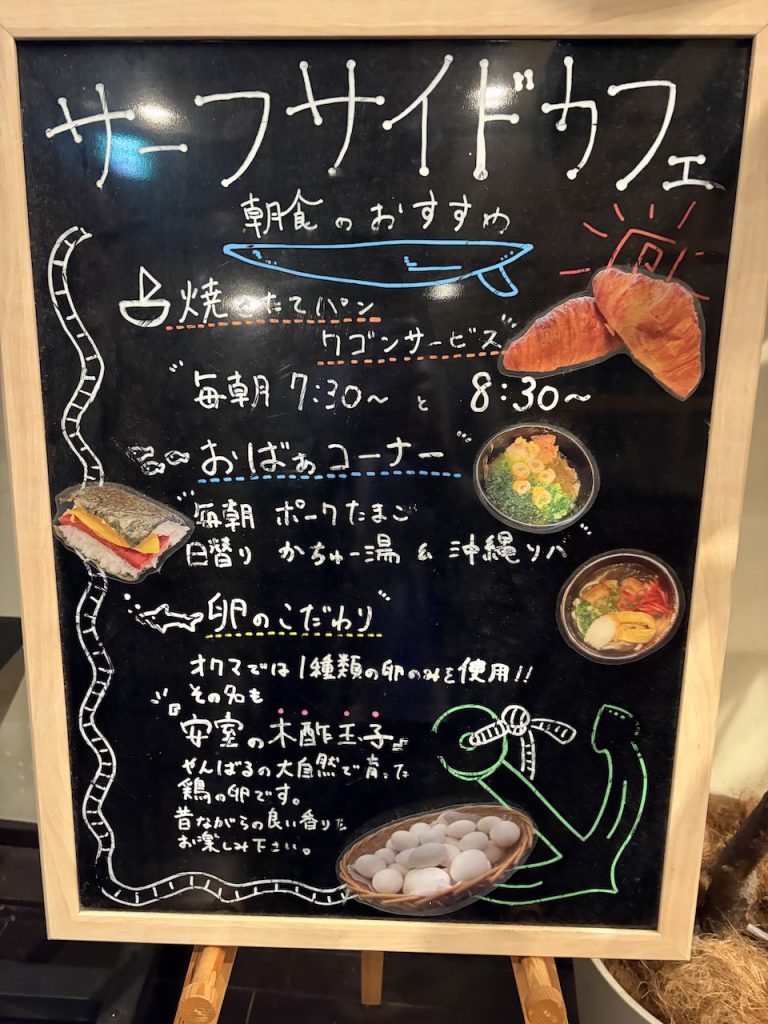 サーフサイドカフェ
朝食のおすすめ
焼きたてパン
ワゴンサービス
毎朝 7:30〜 と 8:30〜
おばぁコーナー
毎朝 ポークたまご
日替り かちゅー湯 & 沖縄ソバ
卵のこだわり
オクマでは1種類の卵のみを使用!!
その名も
『安室の木酢玉子』
やんばるの大自然で育った
鶏の卵です。
昔ながらの良い香りを
お楽しみ下さい。